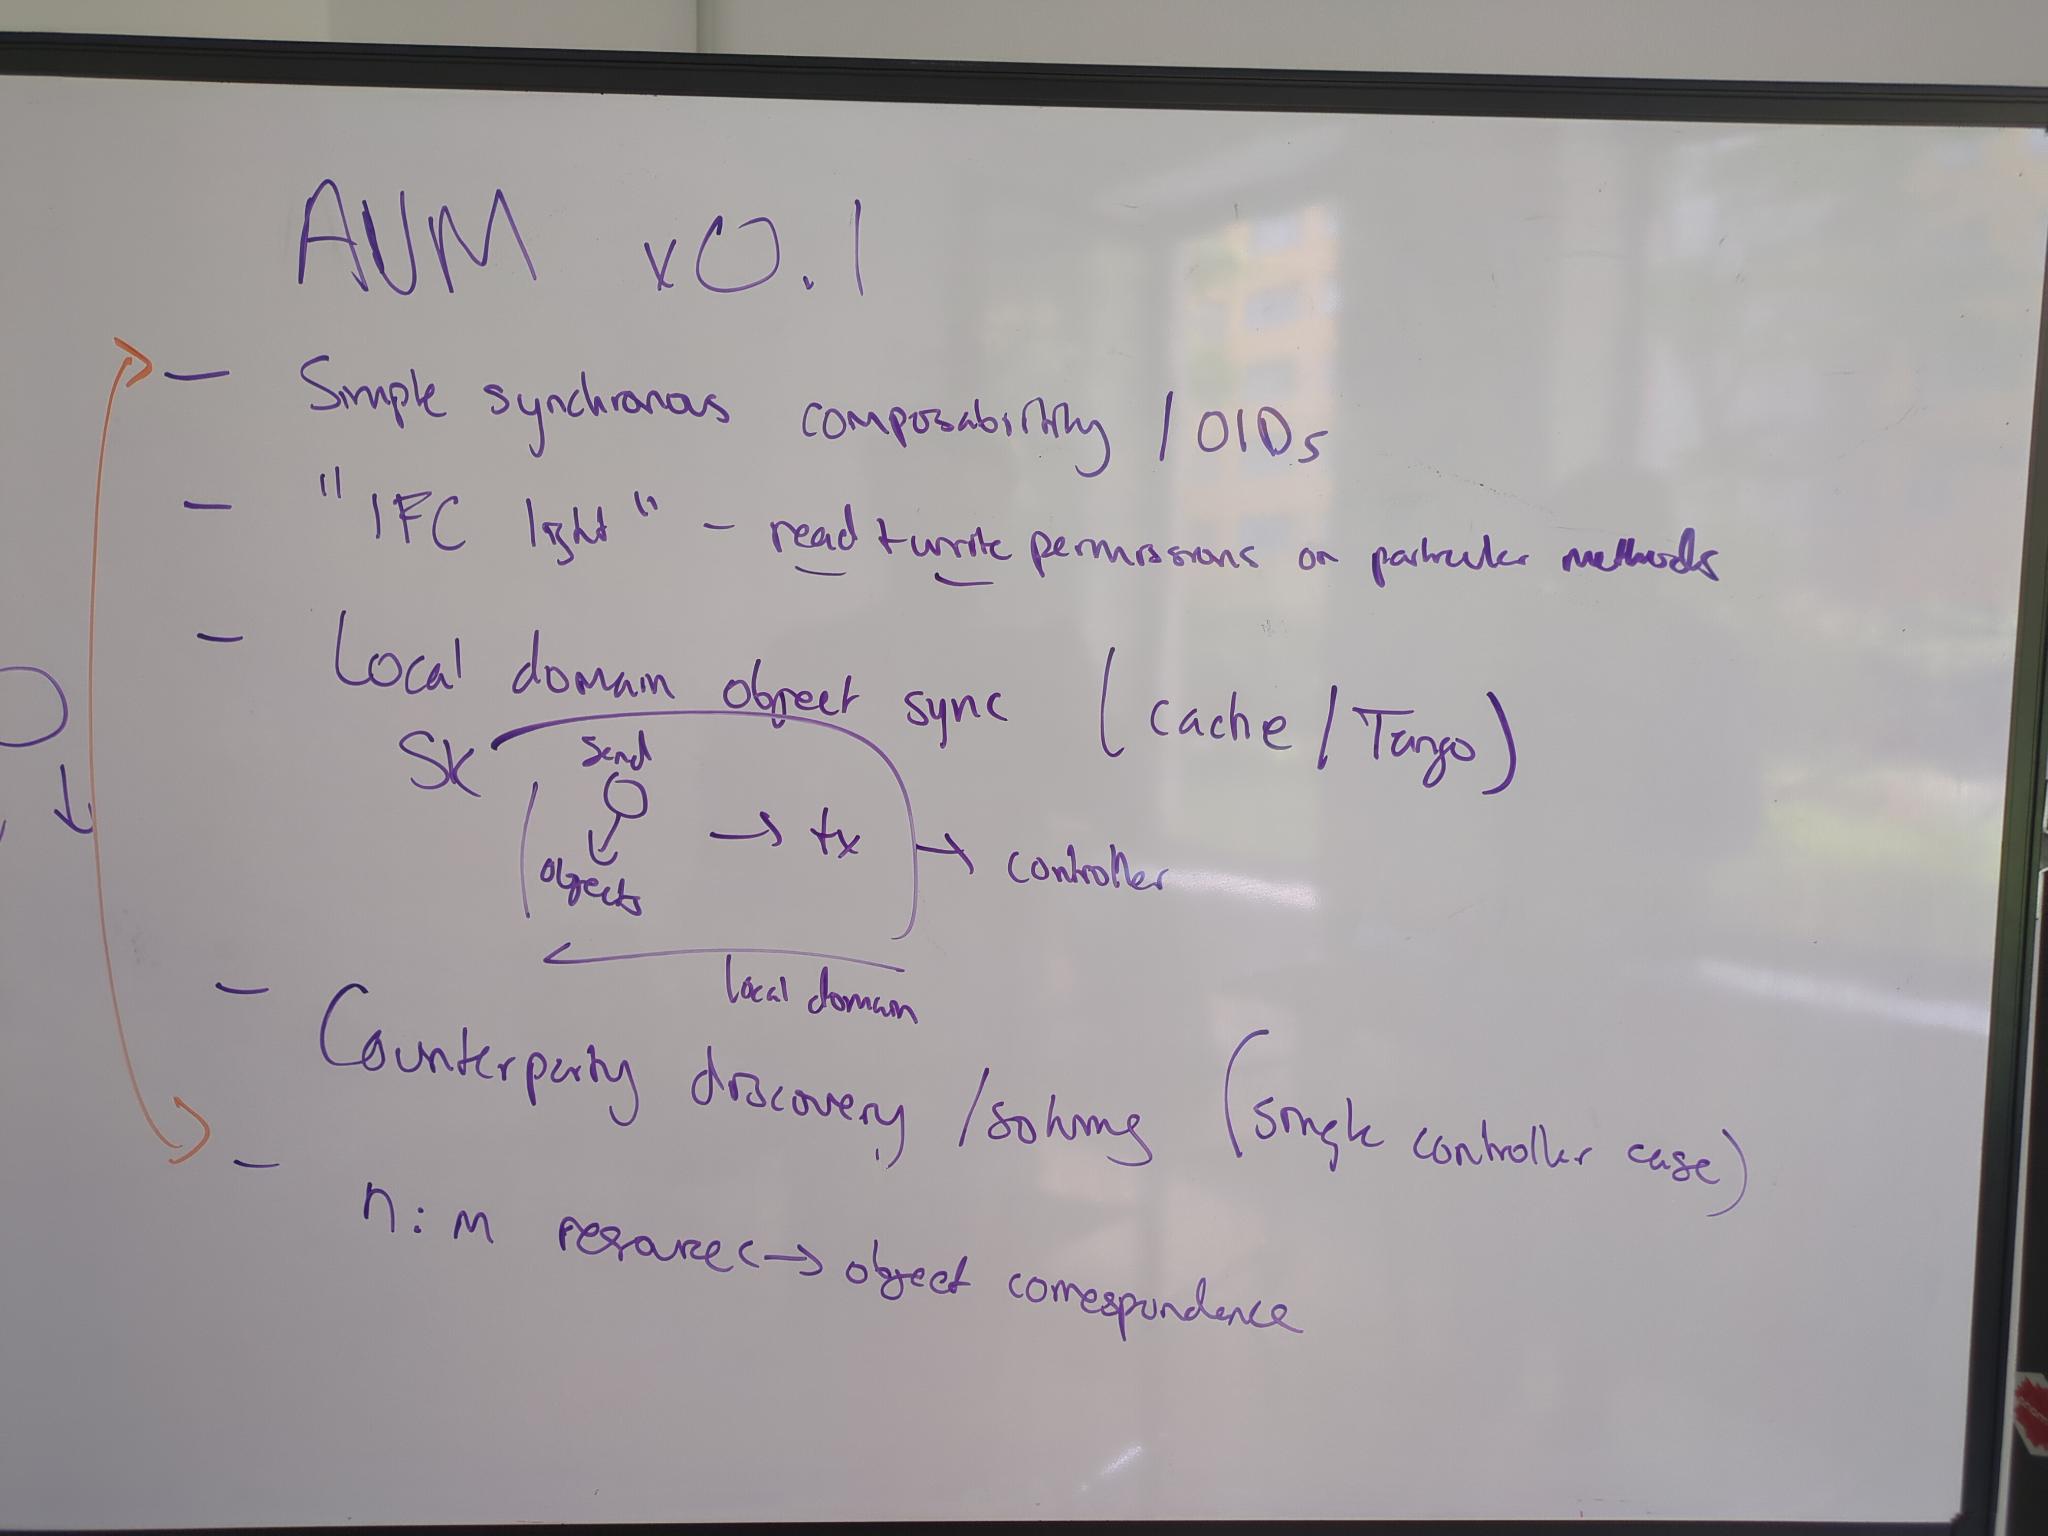 AVM v0.1
- Simple synchronous composability / OIDs
- "IFC light" - read + write permissions on particular methods
- Local domain object sync (cache/Tango)
SK
send
objects
→ tx
→ controller
local domain
- Counterparty discovery /solving (single controller case)
- n:m resource <-> object correspondence